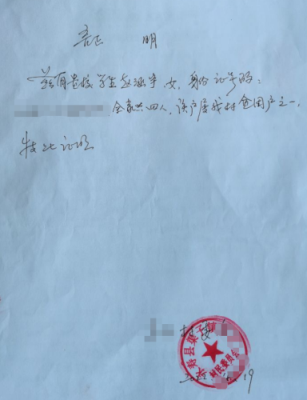 证 明
兹有贵校学生 女，身份证号码：
全家共四人，该户属我村贫困户之一，
特此证明
村民委员会
19